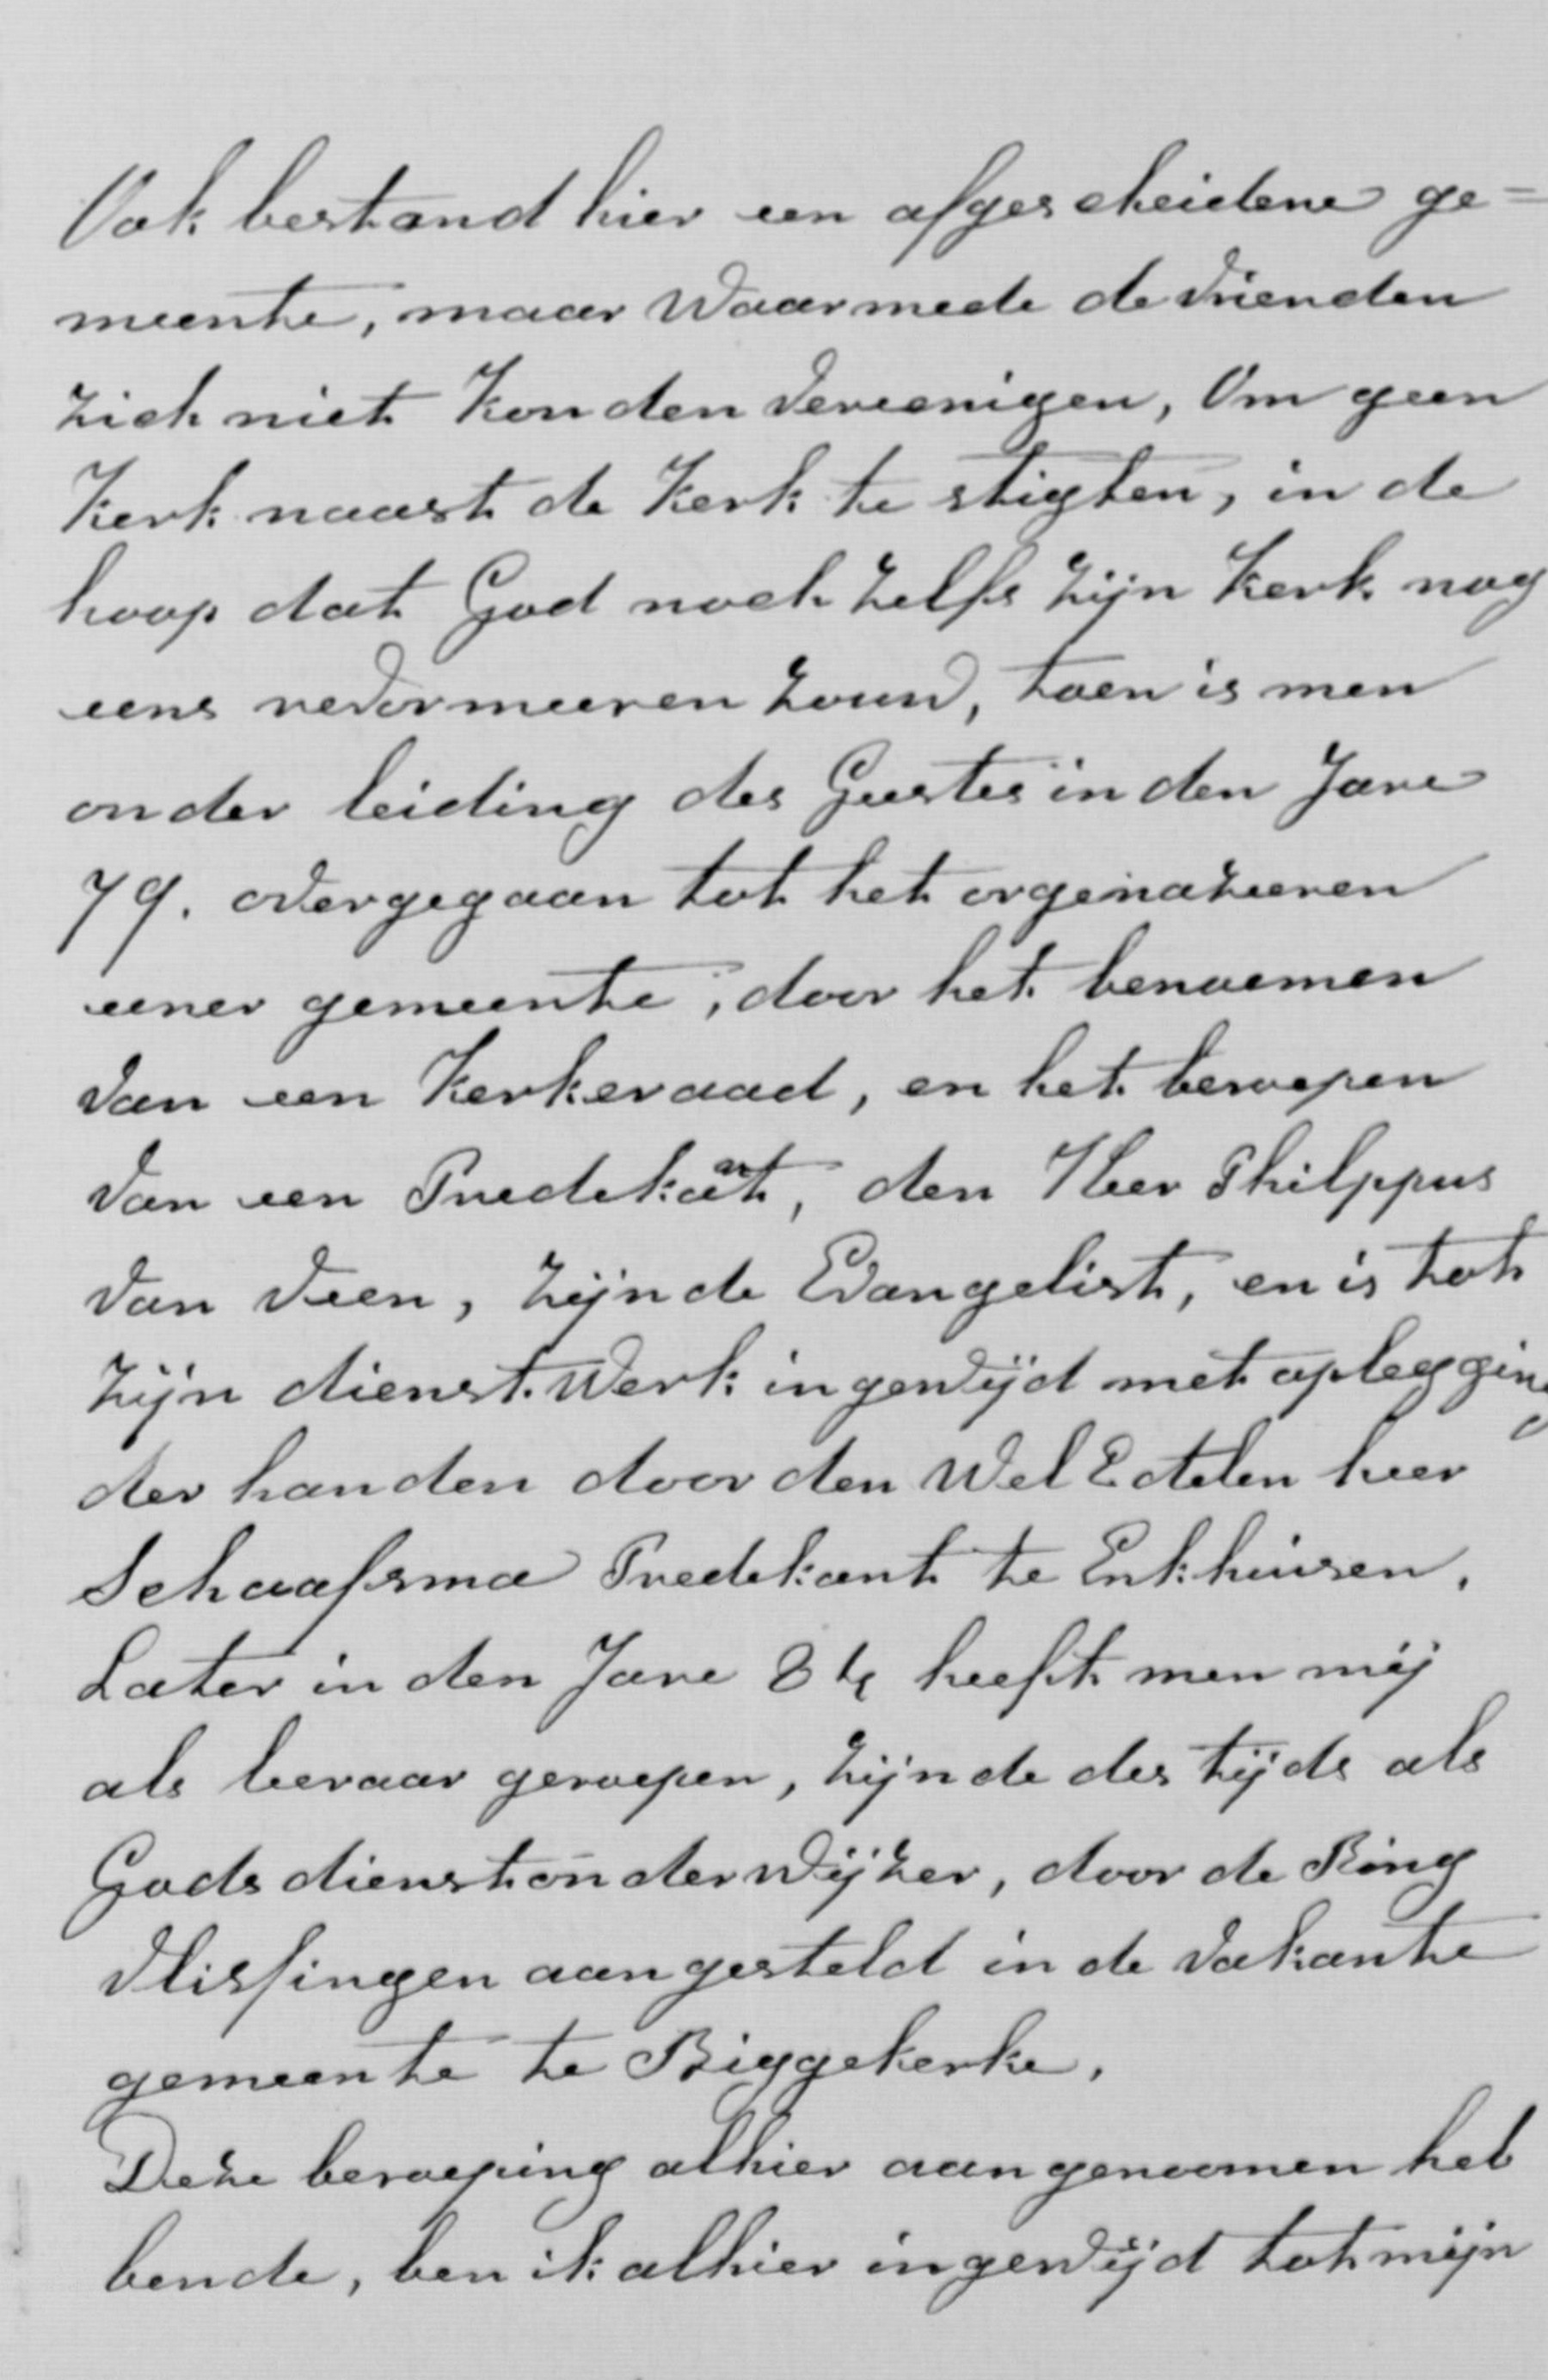 Ook bestond hier een afgescheidene ge=
meente, maar Waarmede de Vrienden
zich niet Konden Vereenigen, Om geen
Kerk naast de Kerk te stigten, in de
hoop dat God noch zelfs zijn Kerk nog
eens revormeeren zouw, toen is men
onder leiding des Geestes in den Jare
79. overgegaan tot het orgenazeeren
eener gemeente, door het benoemen
Van een Kerkeraad, en het beroepen
Van een Predekant, den Heer Philppus
Van Veen, zijnde Evangelist, en is tot
zijn dienst Werk ingewijd met oplegging
der handen door den Wel Edelen heer
Schaafsma Predekant te Enkhuisen.
Later in den Jare 84 heeft men mij
als leeraar geroepen, zijnde des tijds als
Godsdienstonderwijzer, door de Ring
Vlissingen aangesteld in de Vakante
gemeente te Biggekerke.
Deze beroeping alhier aangenoomen heb
bende, ben ik alhier ingewijd tot mijn